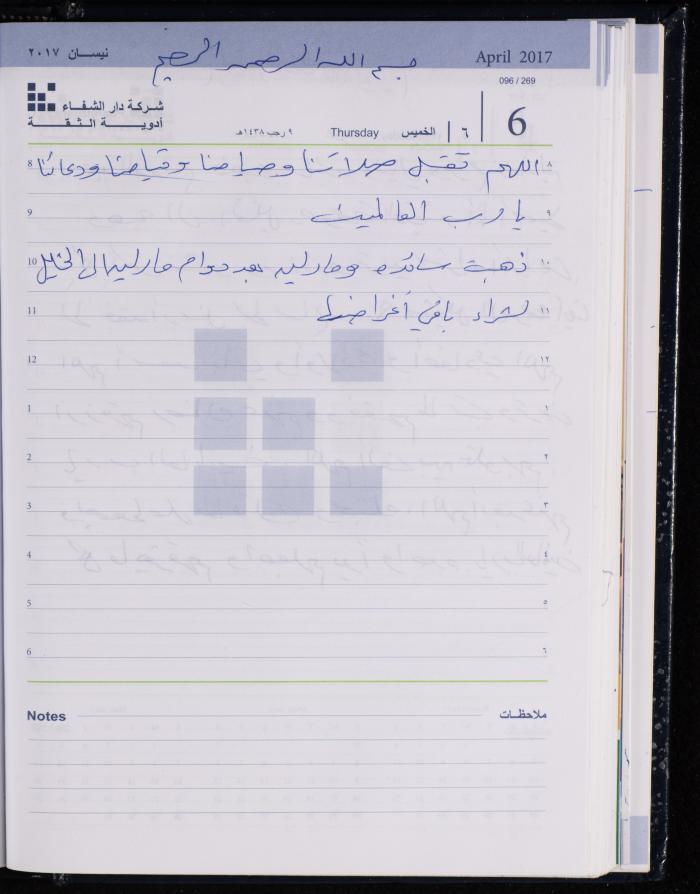 نيسان ٢٠١٧
بسم الله الرحمن الرحيم
April 2017
096 / 269
شركة دار الشفاء
أدوية الثقة
٩ رجب ١٤٣٨هـ
Thursday
الخميس
٦
6
8 اللهم تقبل صلاتنا وصيامنا وقيامنا ودعائنا ٨
9 يا رب العالمين ٩
10 ذهبة سائده ومارلين بعد دوام مارلين الى الخليل ١٠
11 لشراء باقي أغراضها ١١
12 ١٢
1 ١
2 ٢
3 ٣
4 ٤
5 ٥
6 ٦
Notes
ملاحظات